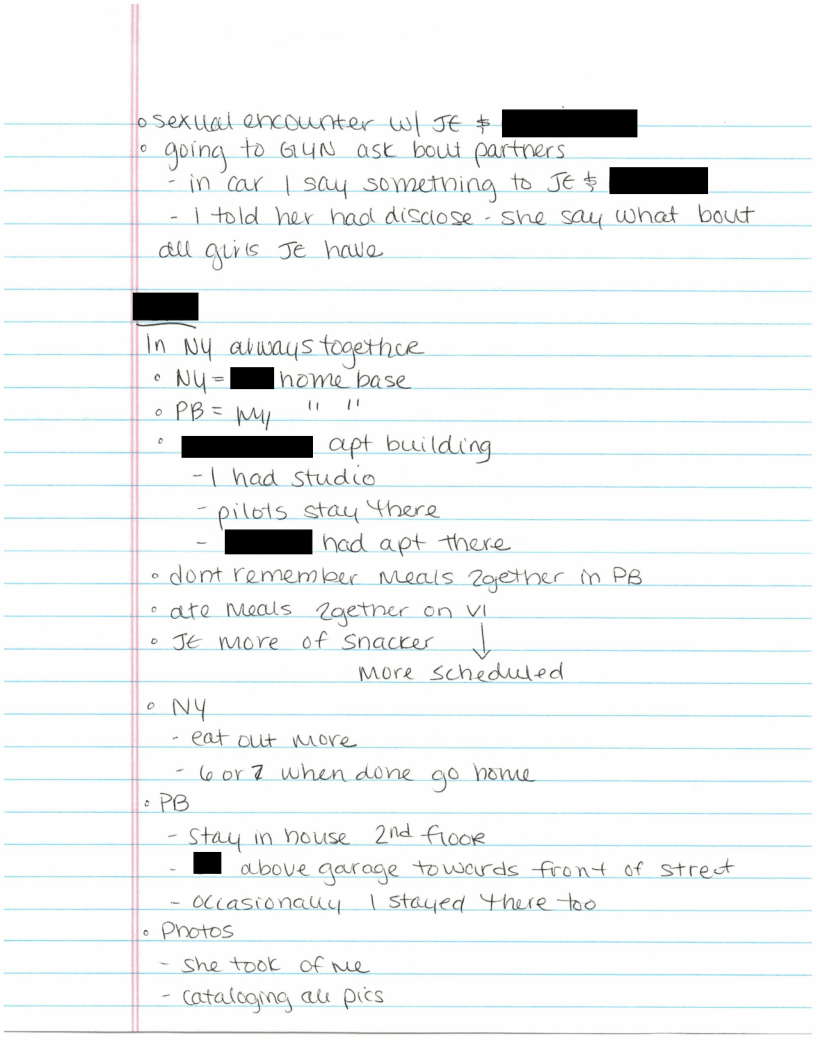 o sexual encounter w/ JE &
o going to GYN ask bout partners
- in car I say something to JE &
- I told her had disclose - she say what bout
all girls JE have
In NY always together
o NY = home base
o PB = my " "
o apt building
- I had studio
- pilots stay there
- had apt there
o dont remember meals 2gether in PB
o ate meals 2gether on VI
o JE more of snacker ↓
more scheduled
o NY
- eat out more
- 6 or 7 when done go home
o PB
- stay in house 2nd floor
- above garage towards front of street
- occasionally I stayed there too
o Photos
- she took of me
- cataloging all pics